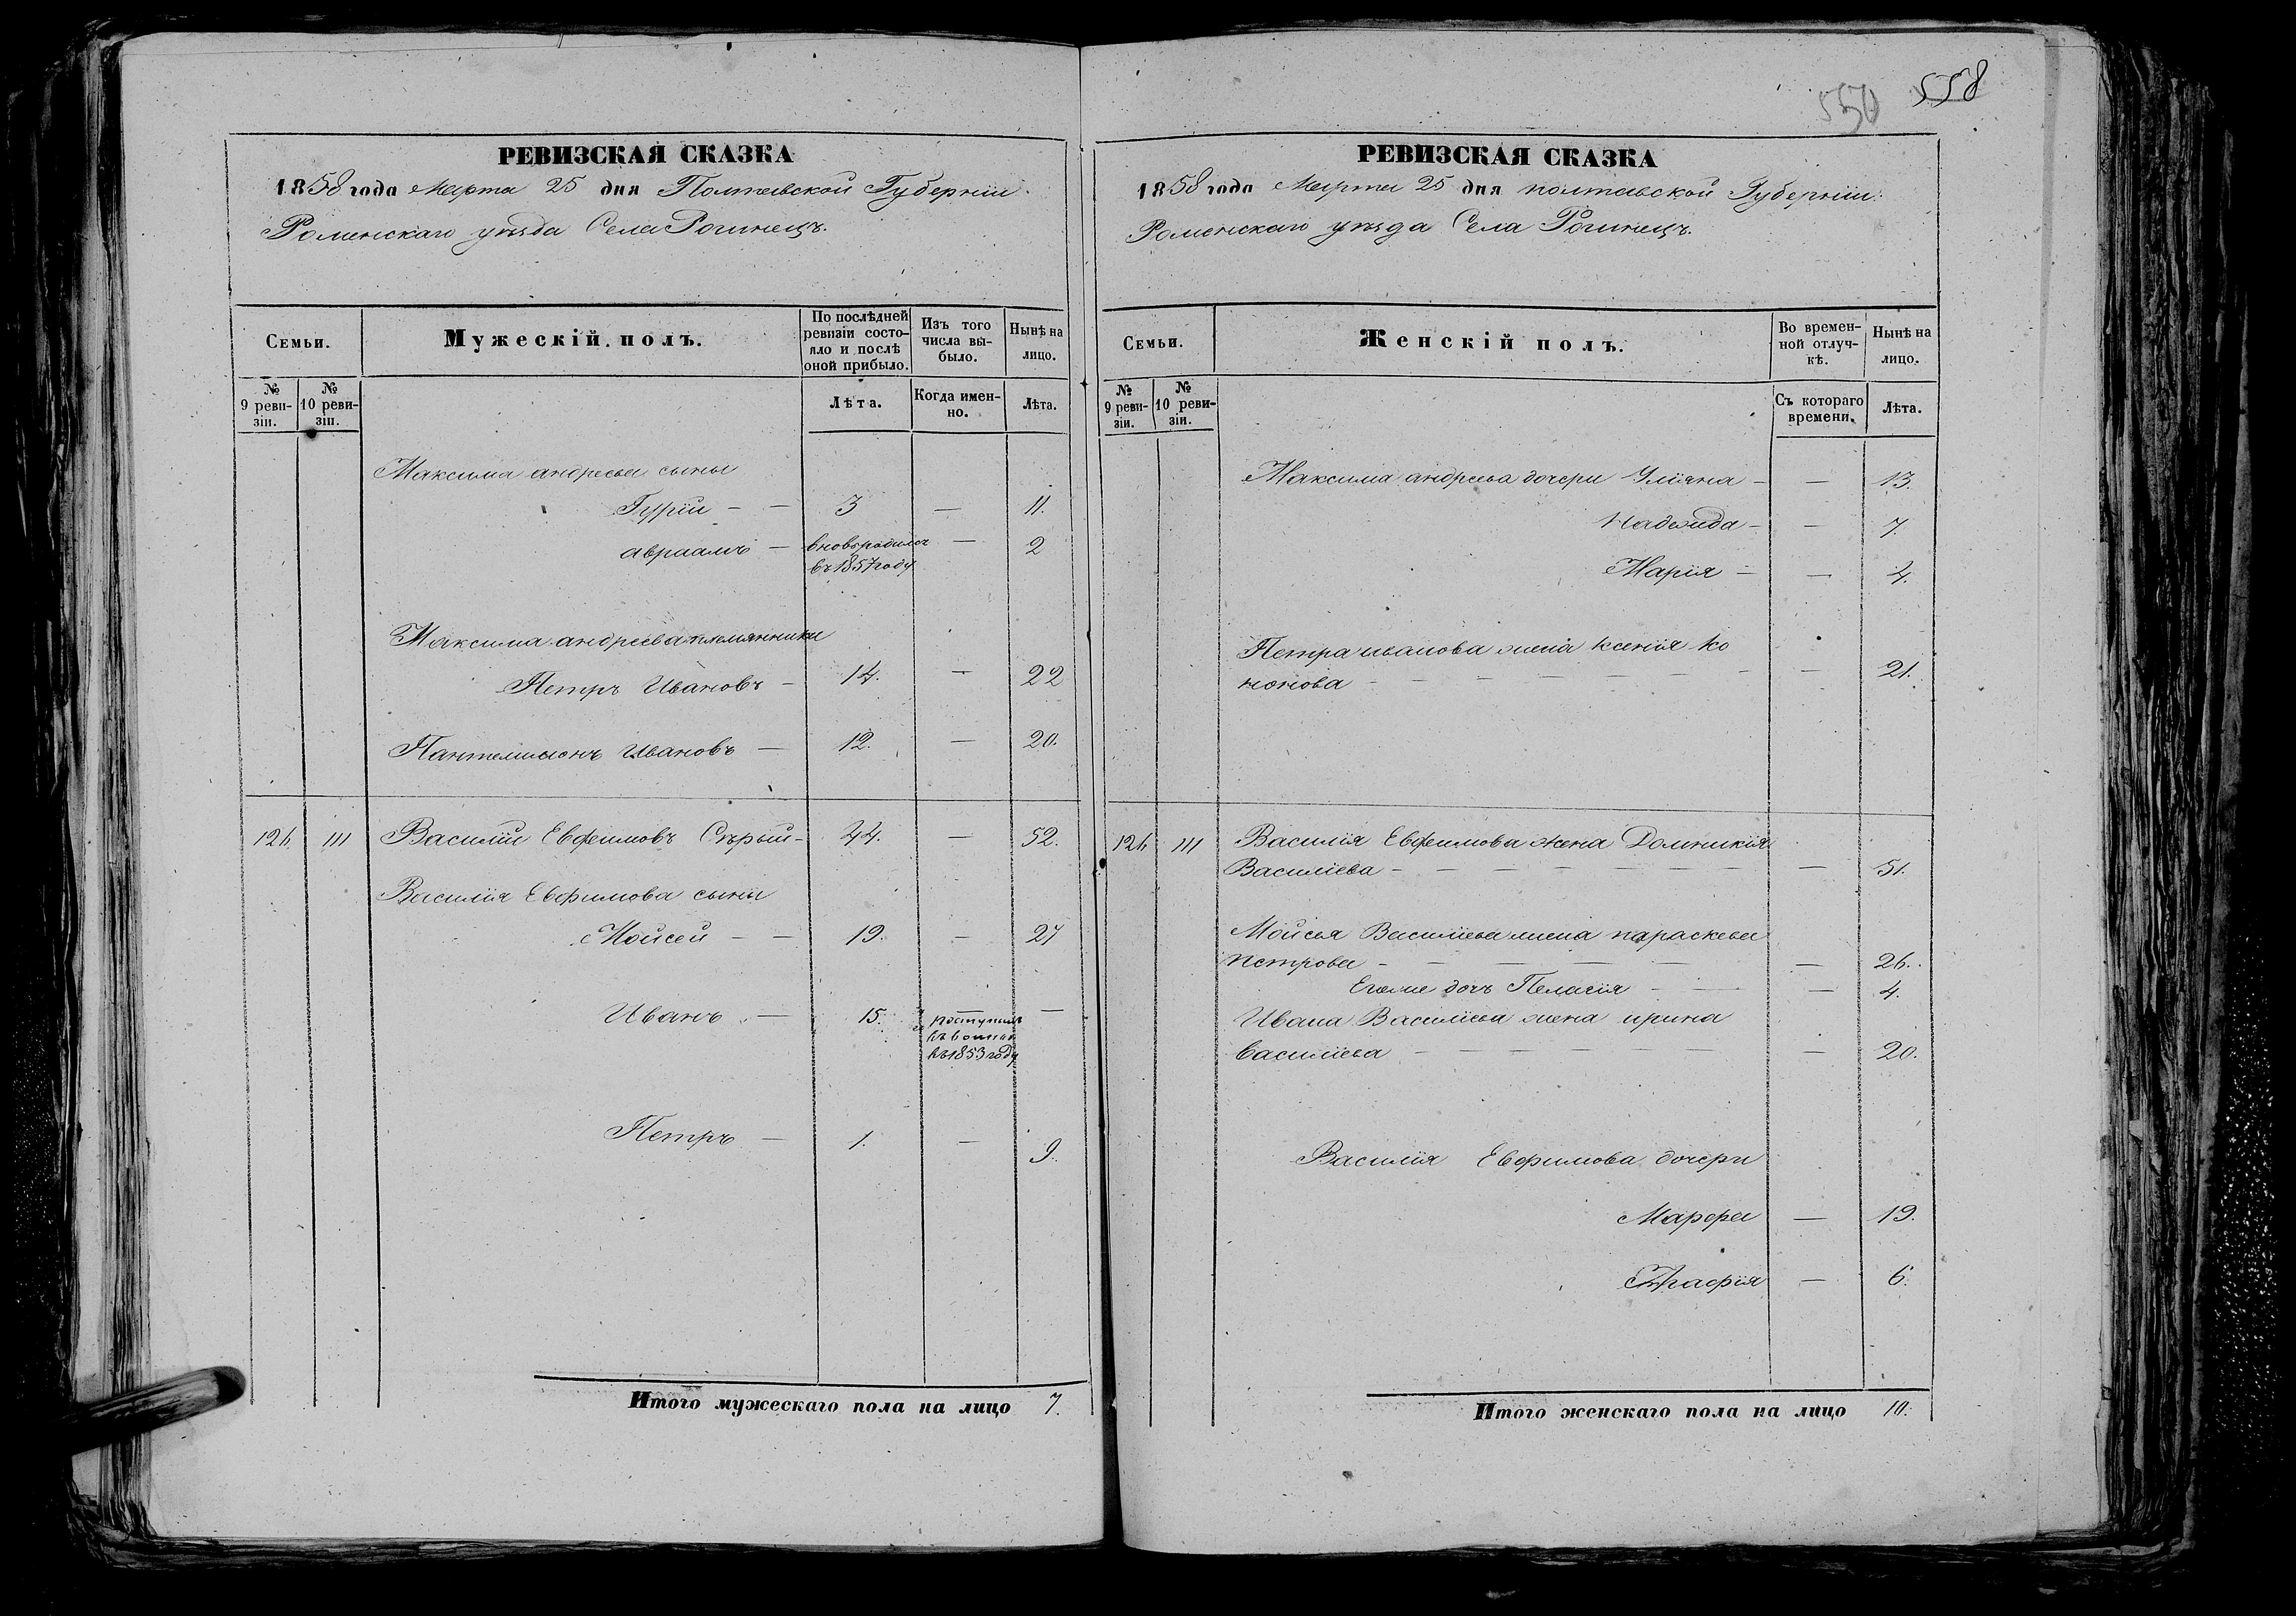 550 558
РЕВИЗСКАЯ СКАЗКА
1858 года Марта 25 дня Полтавской Губернiи
Роменскаго уѣзда Села Рогинецъ.
Семьи. Мужескiй полъ. По послѣдней ревизiи состояло и послѣ оной прибыло. Изъ того числа выбыло. Нынѣ на лицо.
№ 9 ревизiи. № 10 ревизiи. Лѣта. Когда именно. Лѣта.
Максима андреева сыны
Гурiй — — 3 — 11.
авраамъ — вновь родился — 2
въ 1857 году
Максима андреева племянники
Петръ Ивановъ — 14. — 22
Пантелимонъ Ивановъ — 12. — 20.
126. 111 Василiй Евфимовъ Сѣрый — 44. — 52.
Василiя Евфимова сыны
Мойсей — — 19. — 27
Иванъ — 15. поступилъ —
въ 1853 году
Петръ — 1. — 9.
Итого мужескаго пола на лицо 7.
РЕВИЗСКАЯ СКАЗКА
1858 года Марта 25 дня полтавской Губернiи.
Роменскаго уѣзда Села Рогинецъ.
Семьи. Женскiй полъ. Во временной отлучкѣ. Нынѣ на лицо.
№ 9 ревизiи. № 10 ревизiи. Съ котораго времени. Лѣта.
Максима андреева дочери Улiяна — — 13.
Надежда — — 7.
Марiя — — 4.
Петра иванова жена ксенiя ко
нонова — — 21.
126 111 Василiя Евфимова жена Домникiя
Василiева — — 51.
Мойсея Василiева жена параскева
петрова — — 26.
Егоже дочь Пелагiя — — 4.
Ивана Василiева жена ирина
василiева — — 20.
Василiя Евфимова дочери
Марфа — 19.
— 6.
Итого женскаго пола на лицо 10.